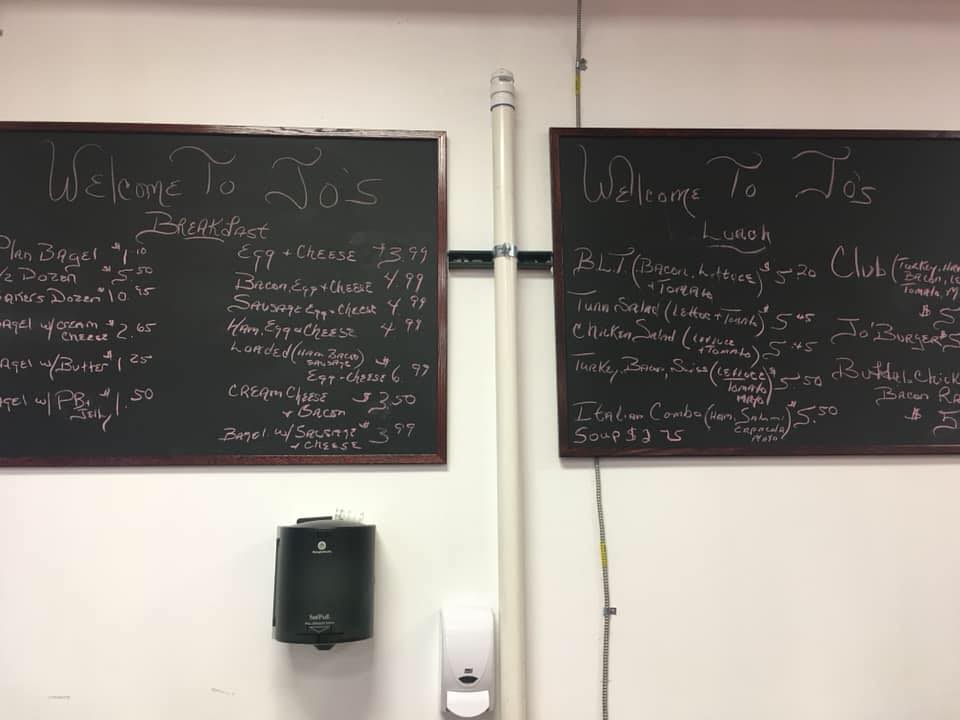 Welcome To Jo's
Breakfast
Plan Bagel $1.10
1/2 Dozen $5.50
Bakers Dozen $10.95
Bagel w/cream $2.65
cheese
Bagel w/Butter $1.25
Bagel w/PB+ $1.50
Jelly
Egg + Cheese $3.99
Bacon, Egg + Cheese 4.99
Sausage Egg + Cheese 4.99
Ham, Egg + Cheese 4.99
Loaded (Ham Bacon
Sausage
Egg + Cheese $6.99
Cream Cheese $2.50
+ Bacon
Bagel w/ Sausage $3.99
+ Cheese
Welcome To Jo's
Lunch
B.L.T. (Bacon, Lettuce $5.20
+ Tomato)
Tuna Salad (Lettus + Tomato) $5.45
Chicken Salad (Lettuce 5.45
+ Tomato)
Turkey, Bacon, Swiss (Lettuce $5.50
Tomato
Mayo)
Italian Combo (Ham, Salami $5.50
Capacola
Mayo)
Soup $2.75
Club (Turkey, Ham
Bacon,
Tomato,
$5
Jo Burger $5
Chick
Bacon Ra
$5